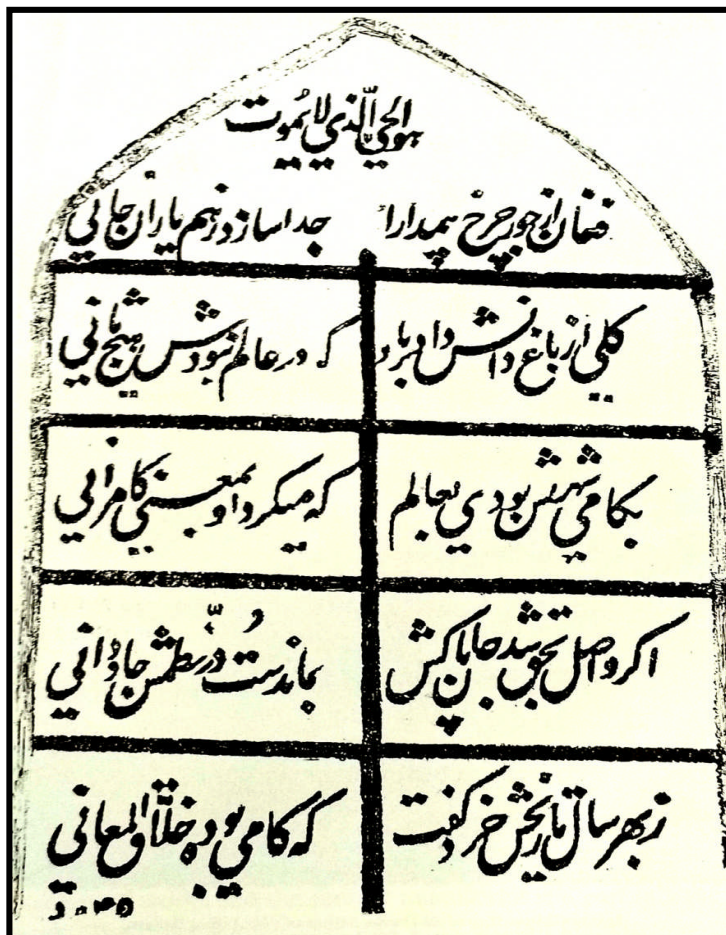 هو الحي الّذي لا يُموت
فغان از جور چرخ پیمدارا جدا سازد زهم یاران جاني
کلي از باغ دانش داد برباد که در عالم نبودش هیچ ثاني
بکامي شهرتش بودي بعالم که میکرد او بمعني کامراني
اکر واصل بحق شد جان پاکش بماندست دُرّ نظمش جاوداني
ز بهر سال تاریخش خرد کفت که کامي بوده خلّاق المعاني